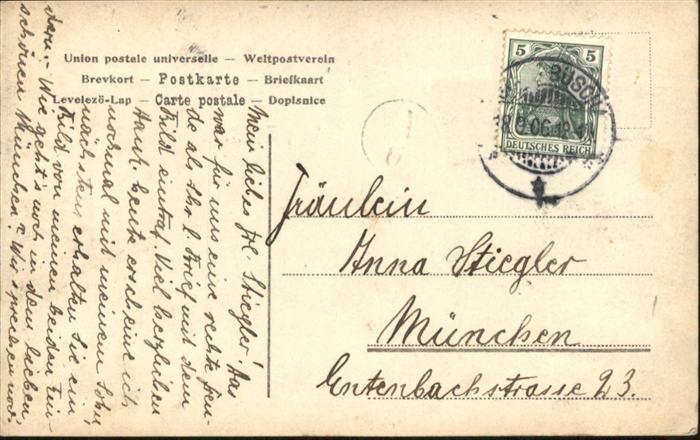 Union postale universelle — Weltpostverein
Brevkort — Postkarte — Briefkaart
Levelezö-Lap — Carte postale — Dopisnice
5 5
DEUTSCHES REICH
8.9.06.12-1
Fräulein
Anna Stiegler
München
Entenbachstrasse 23.
Mein liebes Frl. Stiegler! Das
war für uns eine rechte Freu-
de als Ihr l. Brief mit dem
Bild eintraf. Viel herzlichen
Dank. heute erscheine ich
nochmal mit meinem Sohn,
nächstens erhalten Sie ein
Bild von meinen beiden Kin-
dern. – Wie geht's noch in dem lieben,
schönen München? Wir sprechen noch